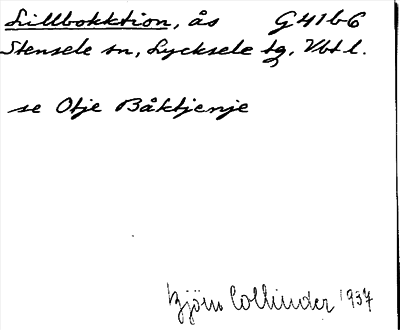 Lillbokktion, ås G41b6
Stensele sn, Lycksele tg, Vbtl.
se Otje Båktjenje
Björn Collinder 1937